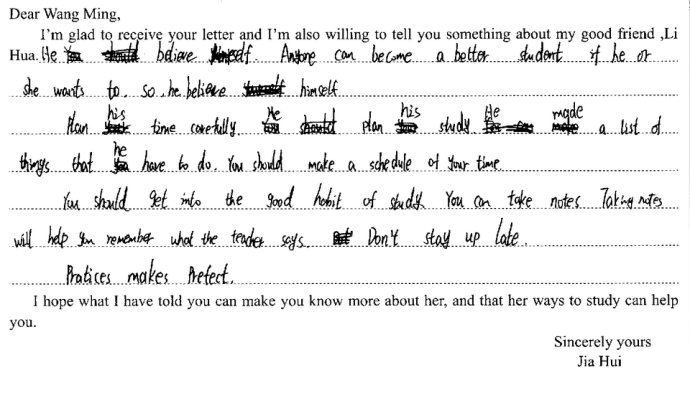 Dear Wang Ming,
I'm glad to receive your letter and I'm also willing to tell you something about my good friend ,Li
Hua. He believe himself. Anyone can become a better student if he or
she wants to. so he believe himself
Plan his time carefully. He plan his study He made a list of
things that he have to do. You should make a schedule of your time.
You should get into the good habit of study. You can take notes Taking notes
will help you remember what the teacher says. Don't stay up late.
Pratices makes Prefect.
I hope what I have told you can make you know more about her, and that her ways to study can help
you.
Sincerely yours
Jia Hui